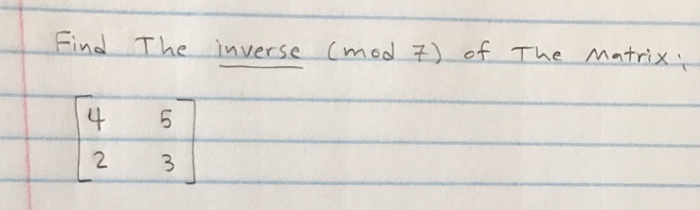 Find The inverse (mod 7) of The Matrix:
4 5
2 3